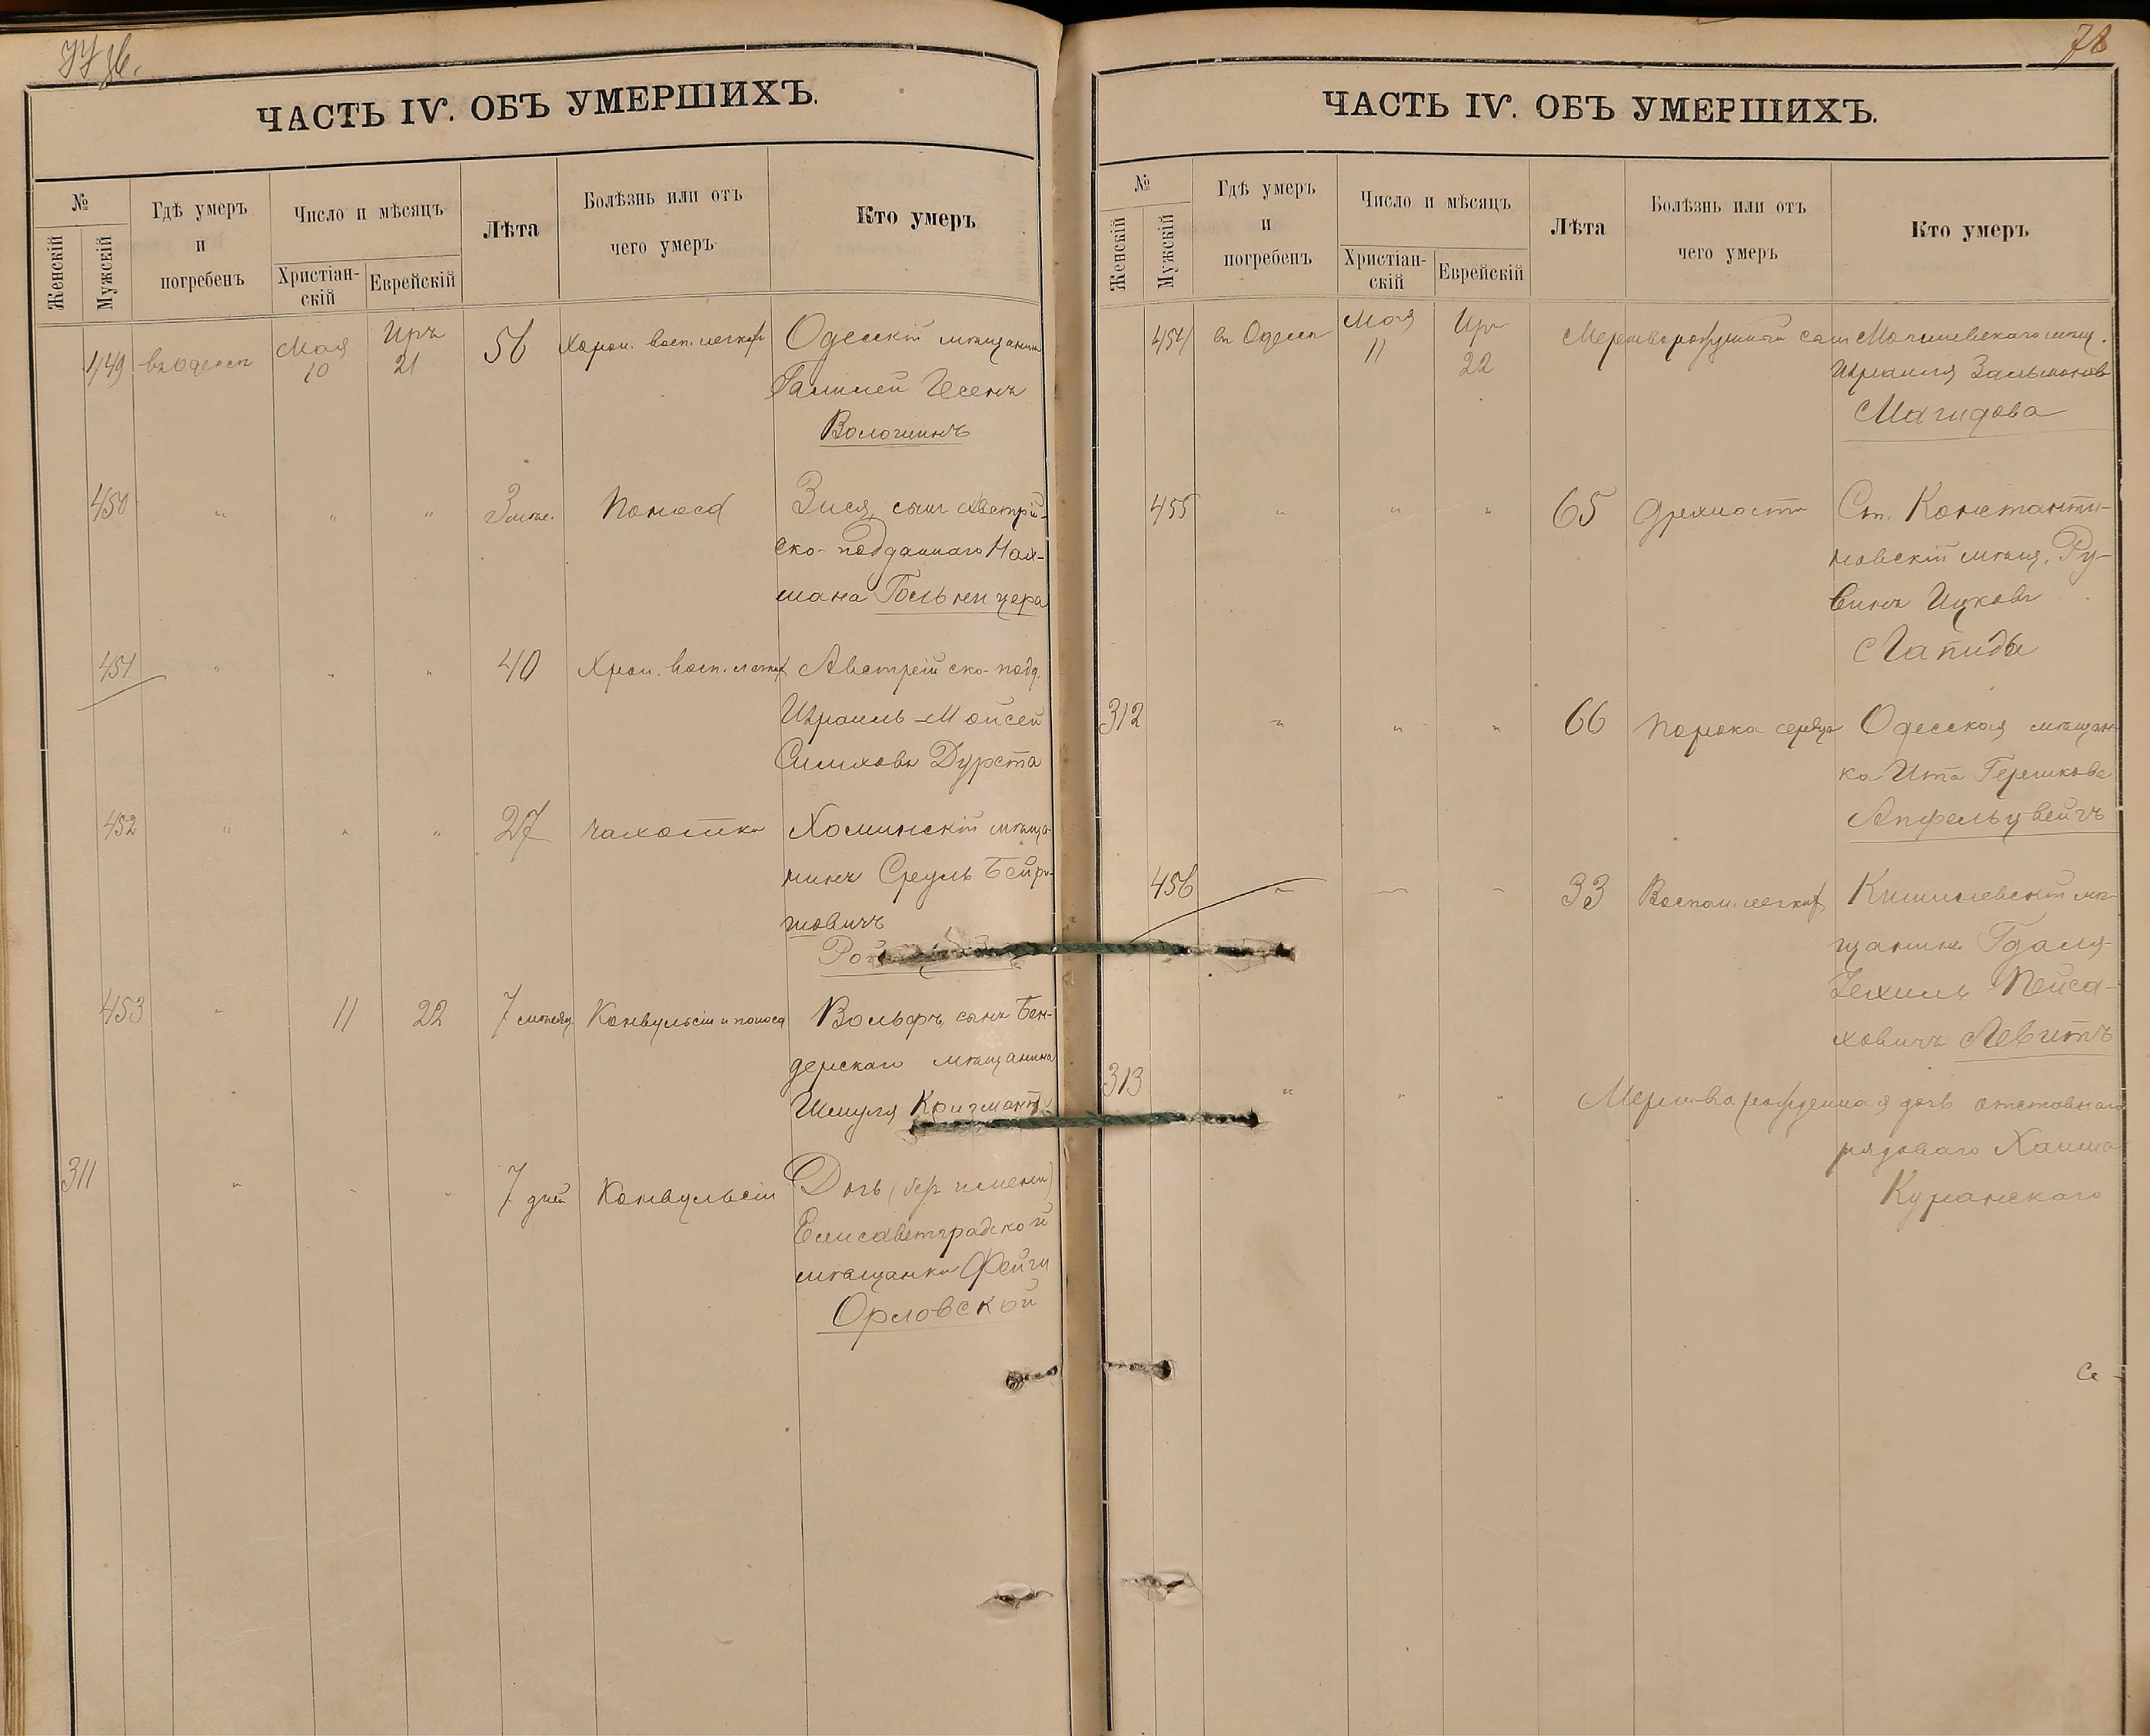 ЧАСТЬ IV. ОБЪ УМЕРШИХЪ.
№
Женскій
Мужскій
Гдѣ умеръ
и
погребенъ
Число и мѣсяцъ
Христіан-
скій
Еврейскій
Лѣта
Болѣзнь или отъ
чего умеръ
Кто умеръ
449 въ Одессѣ Мая 10 Иръ 21 56 Хрон. восп. легких Одесскій мѣщанинъ
Вологинъ
450 " " " 3 мѣс. Поноса Зися, сынъ Австрій-
ско-подданнаго Нах-
мана Гольненцера
451 " " " 40 Хрон. восп. легких Австрійско-подд.
Израиль-Мойсей
Симховъ Дурста
452 " " " 27 чахотка мѣща-
нинъ Сруль Бейри-
шовичъ
453 " 11 22 7 мѣсяц Конвульсіи и поноса Вольфъ, сынъ Бен-
дерскаго мѣщанина
Шмуля
311 " " " 7 дней Конвульсіи Дочь (без имени)
Елисаветградской
мѣщанки Фейги
Орловской
78
ЧАСТЬ IV. ОБЪ УМЕРШИХЪ.
№
Женскій
Мужскій
Гдѣ умеръ
и
погребенъ
Число и мѣсяцъ
Христіан-
скій
Еврейскій
Лѣта
Болѣзнь или отъ
чего умеръ
Кто умеръ
454 въ Одессѣ Мая 11 Иръ 22 Мертворожденный сынъ мѣщ.
Израиля Зальманов
Магидова
455 " " " 65 Дряхлости Ст. Константи-
новскій мѣщ. Ру-
винъ Ицковъ
Лапиды
312 " " " 66 Порока сердца Одесская мѣщан-
ка Ита Гершкова
Апфельцвейгъ
456 " " " 33 Воспал. легких Кишиневскій мѣ-
щанинъ Гдаля-
Іехиль Пейса-
ховичъ Левитъ
313 " " " Мертворожденная дочь отставнаго
рядоваго Хаима
Куманскаго